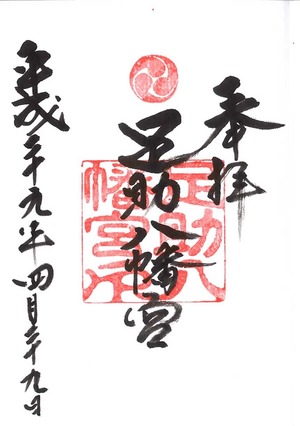 奉拝
足助八幡宮
足助八幡宮印
平成二十九年四月二十九日